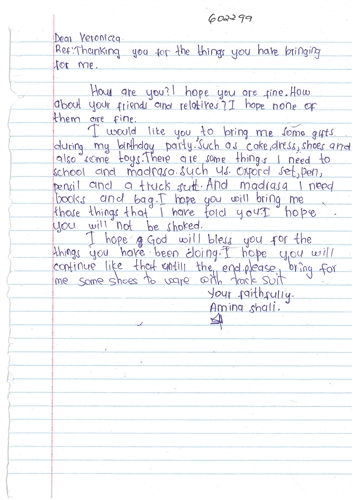 602299
Dear Veronicca
Ref: Thanking you for the things you have bringing
for me.
How are you? I hope you are fine. How
about your friends and relatives? I hope none of
them are fine.
I would like you to bring me some gifts
during my birthday party. Such as cake, dress, shoes and
also some toys. There are some things I need to
school and madrasa. such us. oxpord set, pen,
pensil and a truck sutt. And madrasa I need
books and bag. I hope you will bring me
those things that I have told you I hope
you will not be shoked.
I hope God will bless you for the
things you have been doing. I hope you will
continue like that untill the end. please, bring for
me some shoes to ware with track suit
Your faithfully.
Amina shali.